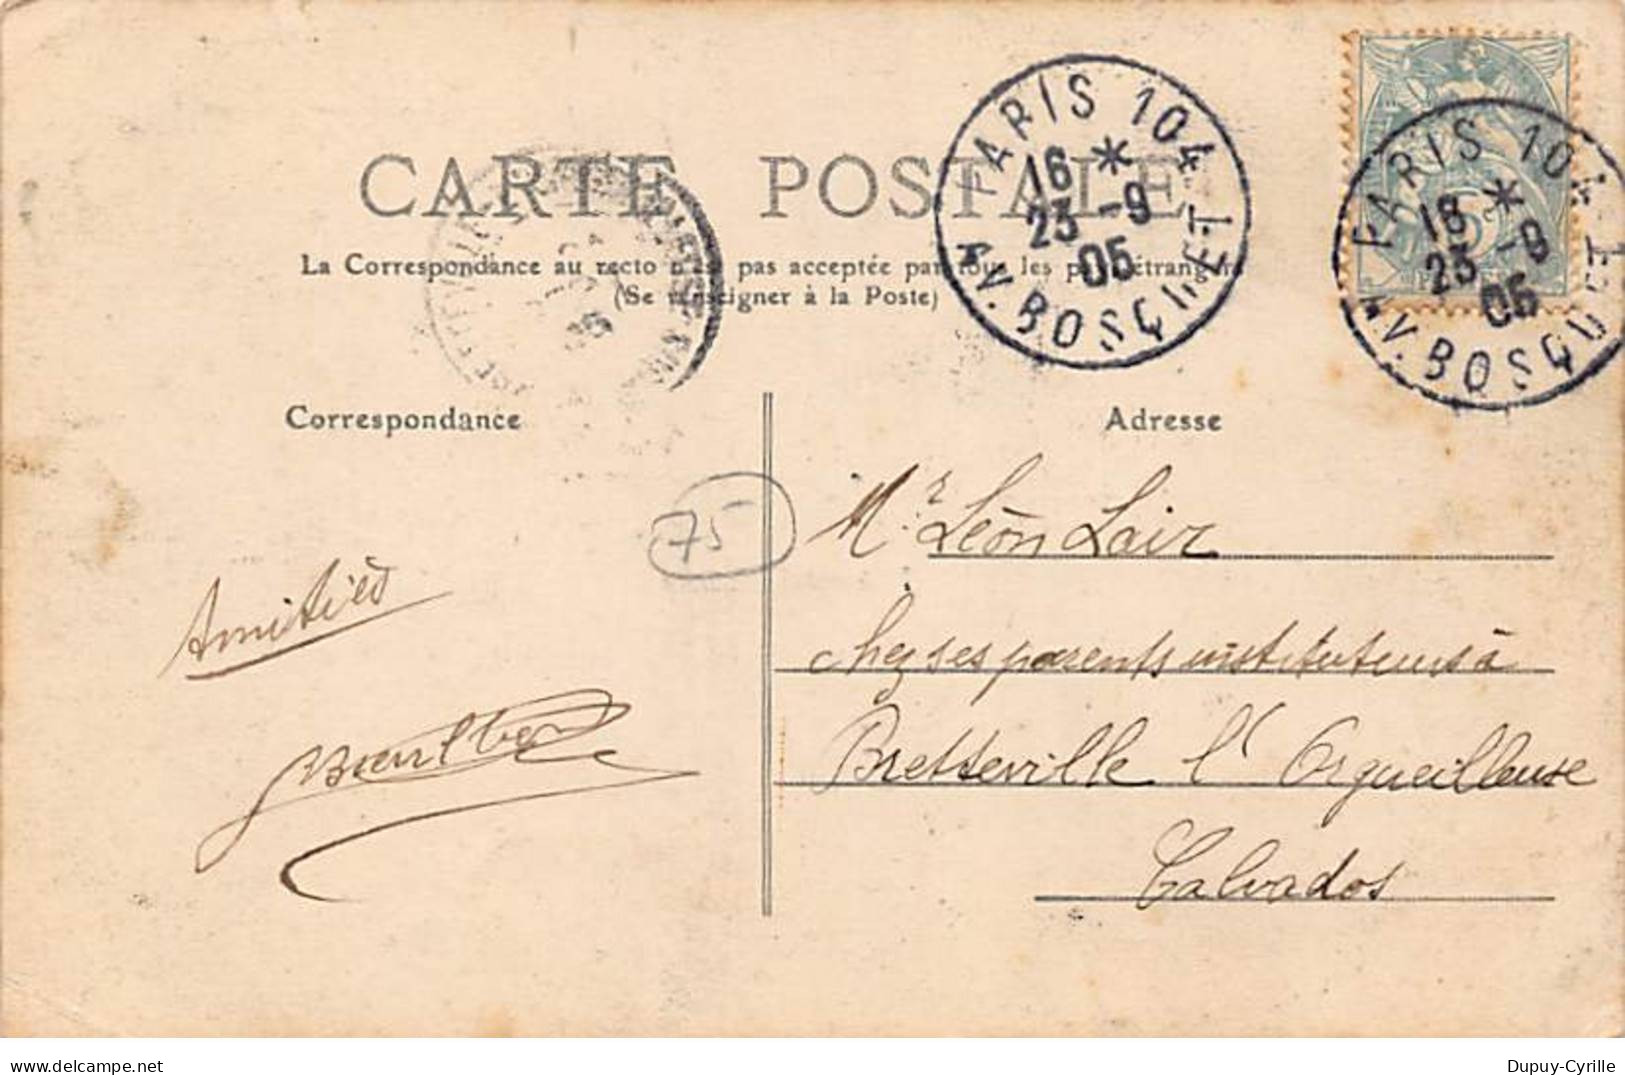 PARIS 104
16 *
23 -9
05
AV. BOSQUET
PARIS 104
16 *
23 -9
05
AV. BOSQUET
5
CARTE POSTALE
La Correspondance au recto n'est pas acceptée par tous les pays étrangers
(Se renseigner à la Poste)
Correspondance
Adresse
75
Amitiés
Mr Léon Lair
chez ses parents instituteurs à
Bretteville l'Orgueilleuse
Calvados
delcampe.net
Dupuy-Cyrille